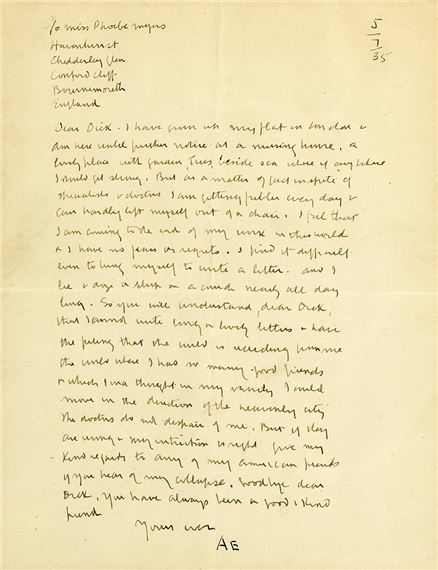 To Miss Phoebe Myers
Havenhurst
Chedderley Glen
Conford Cliff
Bournemouth
England
5
7
35
Dear Dick. I have given up my flat in London &
am here until further notice at a nursing home, a
lovely place with garden, trees, beside sea where if anywhere
I should get strong. But as a matter of fact in spite of
specialists & doctors I am getting feebler every day &
can hardly lift myself out of a chair. I feel that
I am coming to the end of my work in this world
& I have no fears or regrets. I find it difficult
even to bring myself to write a letter. and I
lie & doze or sleep on a couch nearly all day
long. So you will understand, dear Dick,
that I cannot write long & lively letters & have
the feeling that the world is receding from me
the world where I had so many good friends
& which I once thought in my vanity I could
move in the direction of the heavenly city
The doctors do not despair of me. But if they
are wrong & my intuition is right give my
kind regards to any of my american friends
if you hear of my collapse. Goodbye dear
Dick. You have always been a good & kind
friend
Yours ever
AE